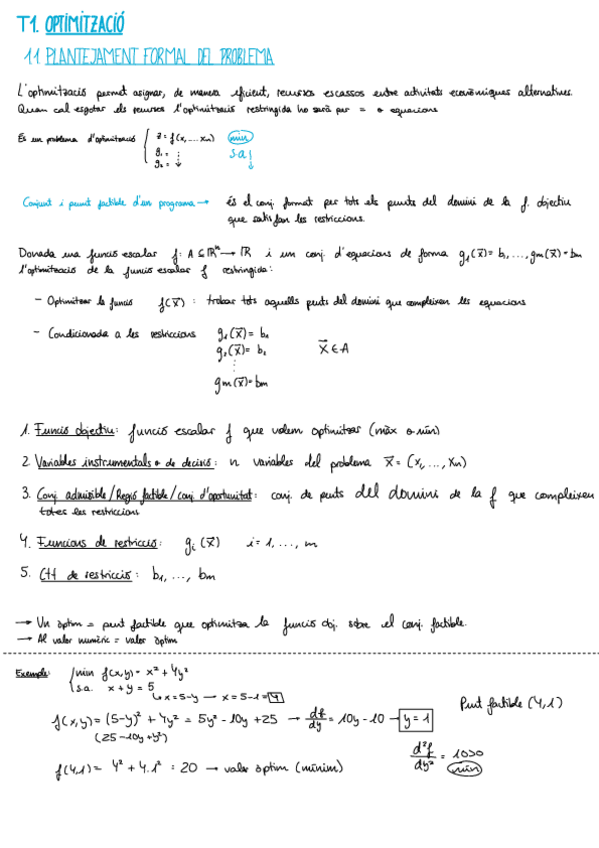 T1. OPTIMITZACIÓ
1.1 PLANTEJAMENT FORMAL DEL PROBLEMA
L'optimització permet asignar, de manera eficient, recursos escassos entre activitats econòmiques alternatives.
Quan cal esgotar els recursos l'optimització restringida ho serà per = o equacions
És un problema d'optimització { z = f(x, ... xn) min
g1 = s.a
g2 =
Conjunt i punt factible d'un programa → és el conj. format per tots els punts del domini de la f. objectiu
que satisfan les restriccions.
Donada una funció escalar f: A ⊆ ℝⁿ → ℝ i un conj. d'equacions de forma g1(x⃗) = b1, ..., gm(x⃗) = bm
l'optimització de la funció escalar f restringida:
- Optimitzar la funció f(x⃗) : trobar tots aquells punts del domini que compleixen les equacions
- Condicionada a les restriccions g1(x⃗) = b1
g2(x⃗) = b2 x⃗ ∈ A
⋮
gm(x⃗) = bm
1. Funció objectiu: funció escalar f que volem optimitzar (màx o mín)
2. Variables instrumentals o de decisió: n variables del problema x⃗ = (x1, ..., xn)
3. Conj admisible/Regió factible/conj d'oportunitat: conj. de punts del domini de la f que compleixen
totes les restriccions
4. Funcions de restricció: gi (x⃗) i = 1, ..., m
5. Ctt de restricció: b1, ..., bm
→ Un òptim = punt factible que optimitza la funció obj. sobre el conj. factible.
→ Al valor numèric = valor òptim
Exemple: { min f(x,y) = x² + 4y²
s.a. x + y = 5
↳ x = 5-y → x = 5-1 = 4
Punt factible (4,1)
f(x,y) = (5-y)² + 4y² = 5y² - 10y + 25 → df/dy = 10y - 10 → y = 1
(25 - 10y + y²)
d²f/dy² = 10>0
min
f(4,1) = 4² + 4.1² = 20 → valor òptim (mínim)